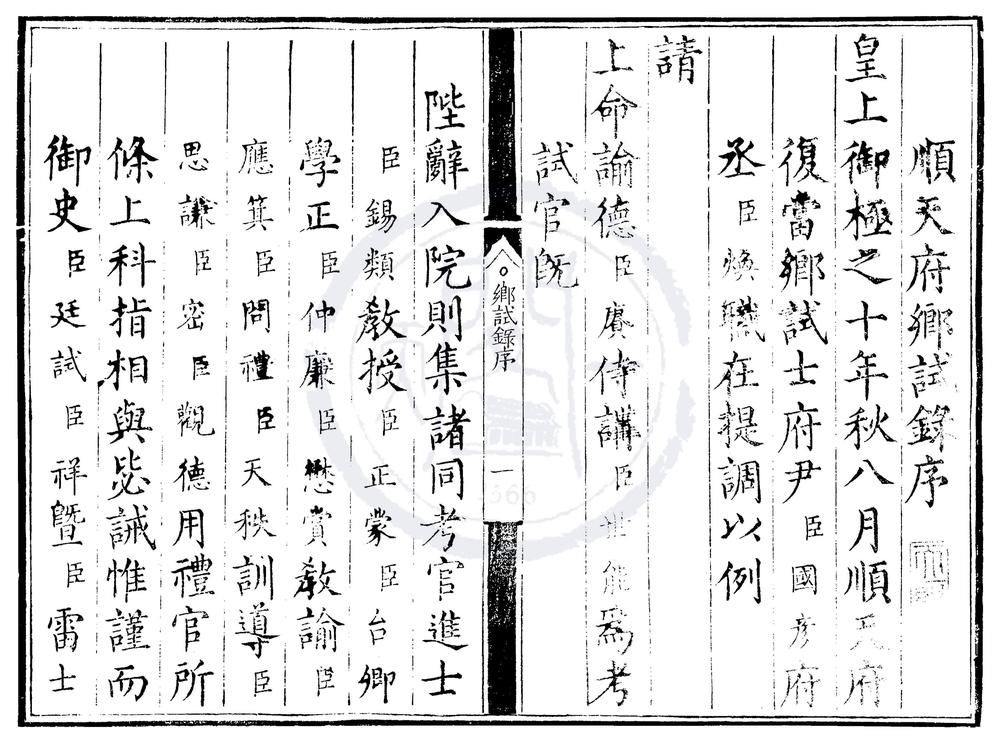 順天府鄉試錄序
皇上御極之十年秋八月順天府
復當鄉試士府尹臣國彥府
丞臣煥職在提調以例
請
上命諭德臣賡侍講臣世能為考
試官既
鄉試錄序
一
陛辭入院則集諸同考官進士
臣錫類教授臣正蒙臣台卿
學正臣仲廉臣懋賞教諭
應箕臣問禮臣天秩訓導臣
思謙臣密臣觀德用禮官所
條上科指相與毖誡惟謹而
御史臣廷試臣祥曁臣雷士